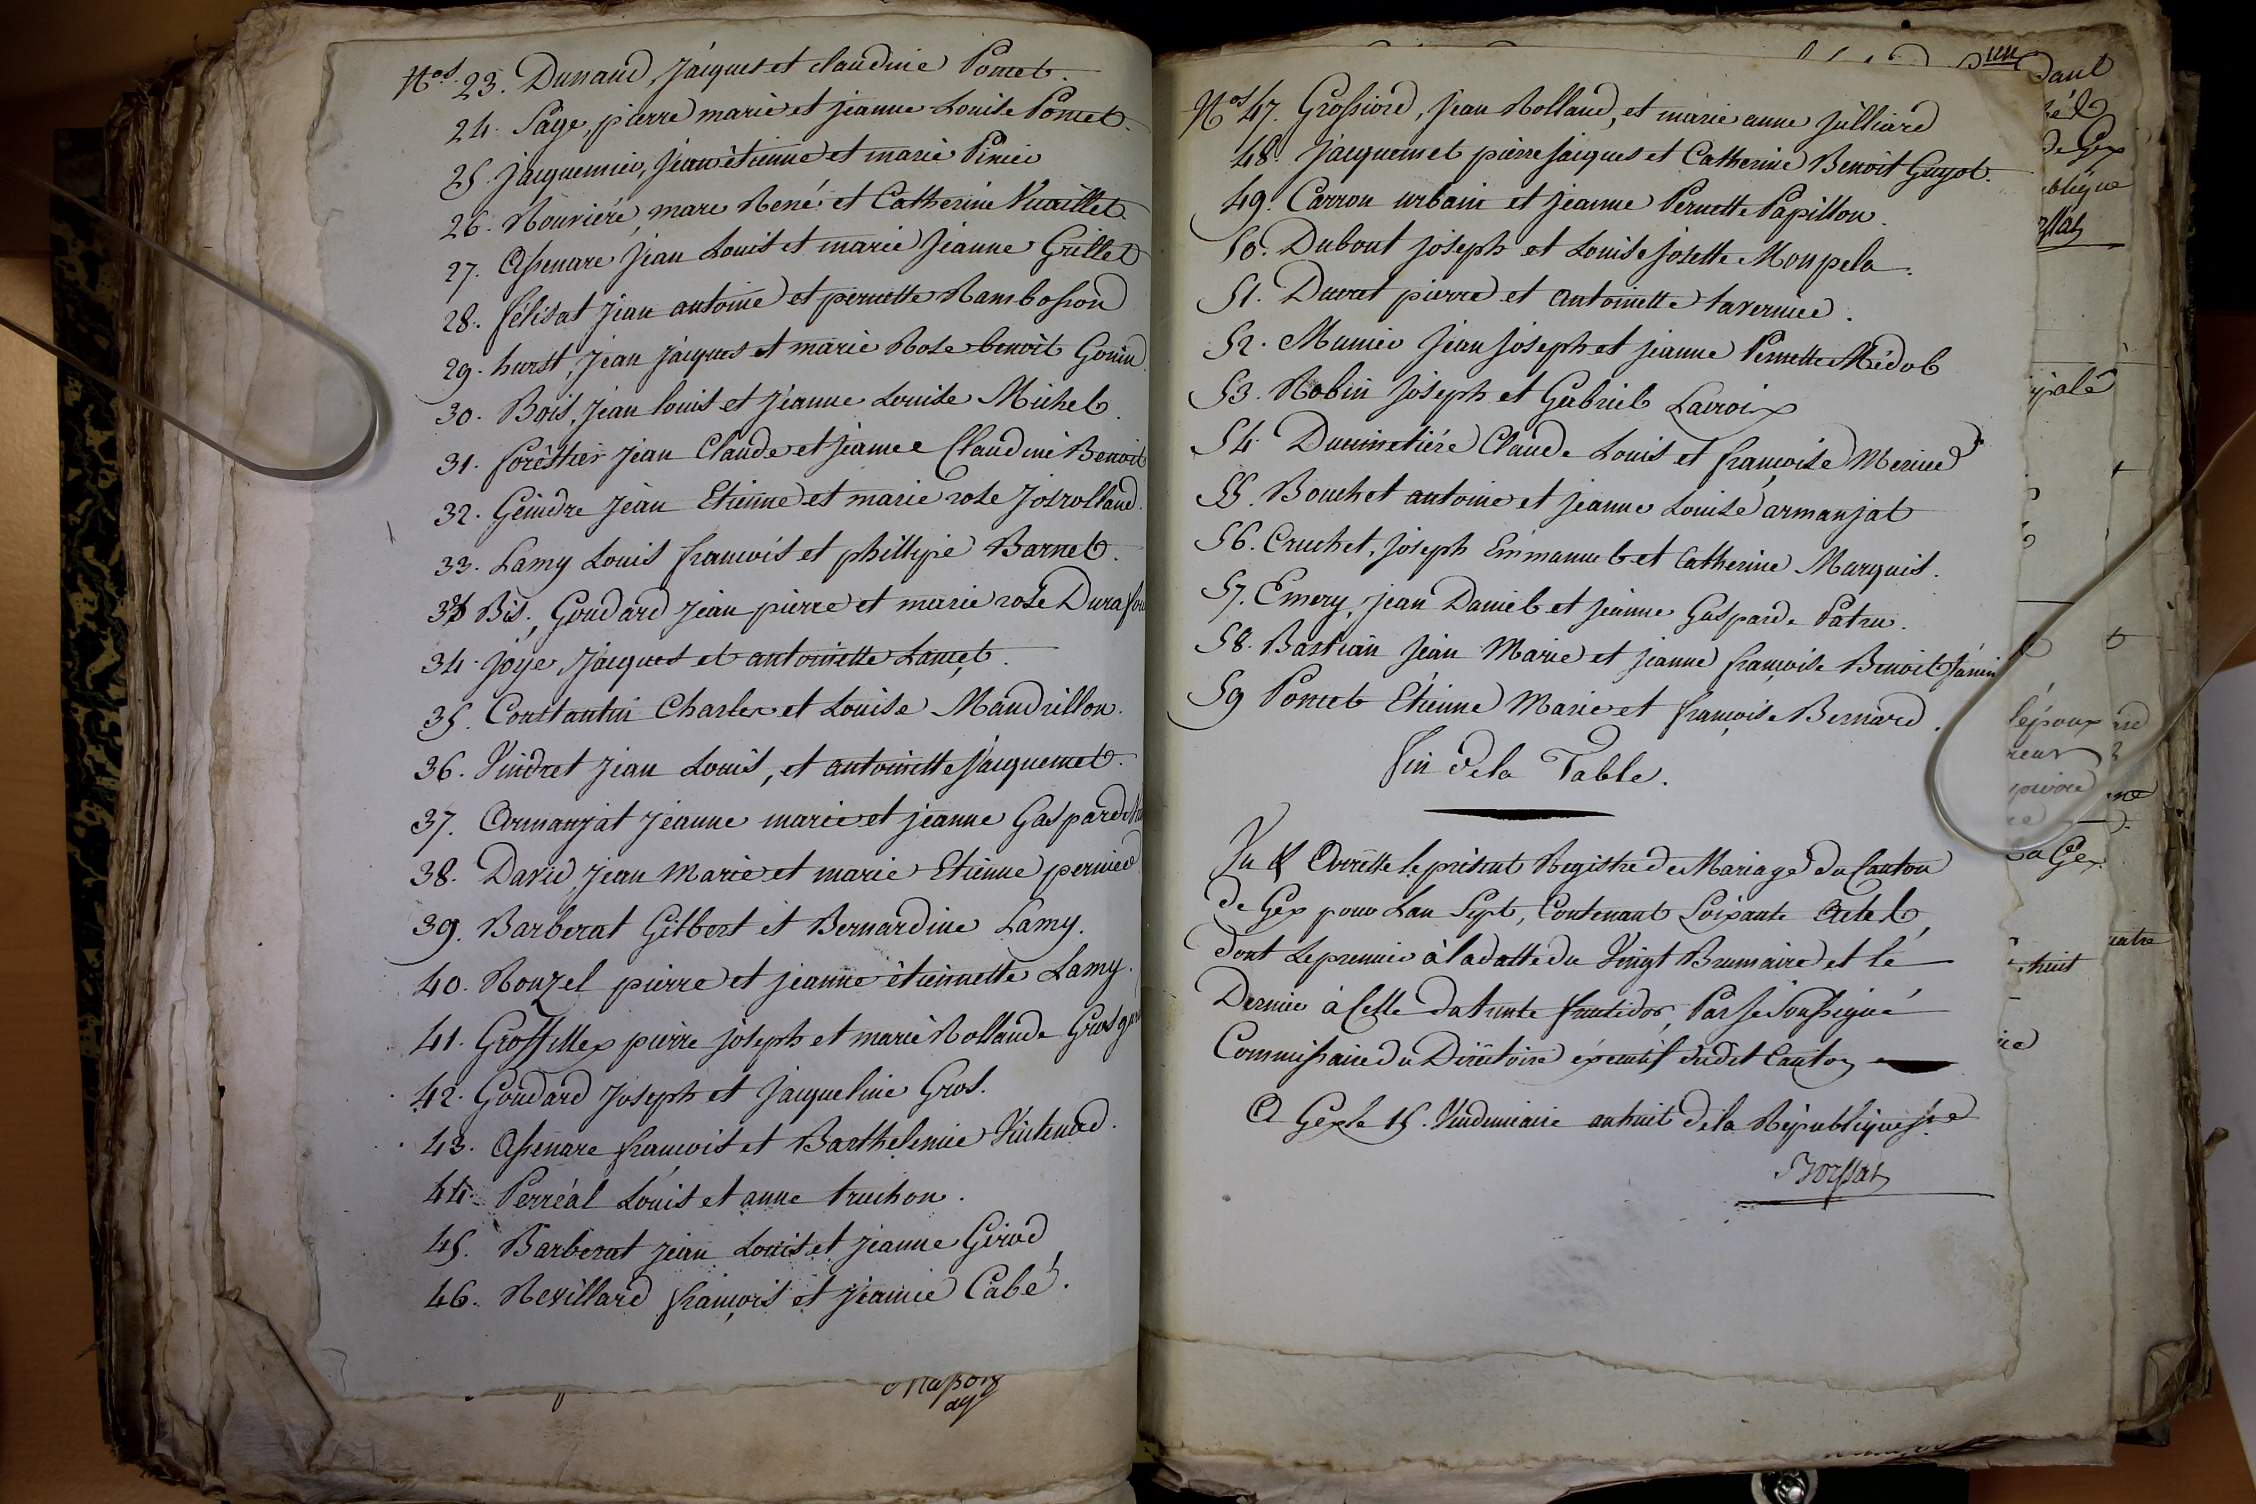 Nos. 23. Dunand, Jacques et claudine Poncet.
24. Page, pierre marie et jeanne Louise Poncet.
25. Jacquemier, Jean étienne et marie Pinier
26. Rouviere, marc René et Catherine Vuaillet
27. Assenare Jean Louis et marie Jeanne Grillet
28. félisat Jean antoine et pernette Rambosson
29. hurst, Jean Jacques et marie Rose benoit Gonin
30. Bois, Jean louis et Jeanne Louise Michel.
31. forêttier Jean Claude et Jeanne Claudine Benoit
32. Geindre Jean Etienne et marie rose Josrolland.
33. Lamy Louis francois et phillipe Barnet.
33 Bis., Goudard Jean pierre et marie rose Durafou
34. Joye, Jacques et antoinette Lançet.
35. Constantin Charles et Louise Mandrillon.
36. Vindret Jean Louis, et antoinette Jacquemet.
37. Armanjat Jeanne marie et jeanne Gasparde
38. David, Jean Marie et marie Etienne pernier
39. Barberat Gilbert et Bernardine Lamy.
40. Rouzel pierre et jeanne étiennette Lamy.
41. Groffillex pierre joseph et marie Rollande Grosgu
42. Goudard Joseph et Jacqueline Gros.
43. Assenare francois et Barthelemie Vintenad.
44. Perréal Louis et anne truchon.
45. Barberat Jean Louis et Jeanne Girod
46. Revillard françois et Jeanne Cabé.
Masson
ag
Nos 47. Grossiord, Jean Rolland, et marie anne Julliard
48. Jacquemet pierre Jacques et Catherine Benoit Guyot.
49. Carron urbain et Jeanne Pernette Papillon.
50. Dubout Joseph et Louise Josette Monpela.
51. Ducret pierre et antoinette tavernier.
52. Munier Jean Joseph et jeanne Pernette Médol
53. Robin Joseph et Gabriel Lacroix
54. Ducimetiére Claude Louis et françoise Mericed
55. Bouchet antoine et Jeanne Louise armanjat
56. Cruchet, Joseph Emmanuel et Catherine Marquis.
57. Emery, Jean Daniel et Jeanne Gasparde Patru.
58. Bastian Jean Marie et jeanne françoise Benoit Janin
59 Poncet Etienne Marie et françoise Bernard.
Fin de la Table.
Vu & Arrette le présent Registre de Mariage du Canton
de Gex pour Lan Sept, Contenant Soixante Actes,
dont Le premier à la datte du Vingt Brumaire et le
Dernier à Celle du trente fructidor, Par Je Soussigné
Commissaire du Directoire éxecutif dudit Canton
A Gex le 15. Vendemiaire an huit de la République fse
Borssat